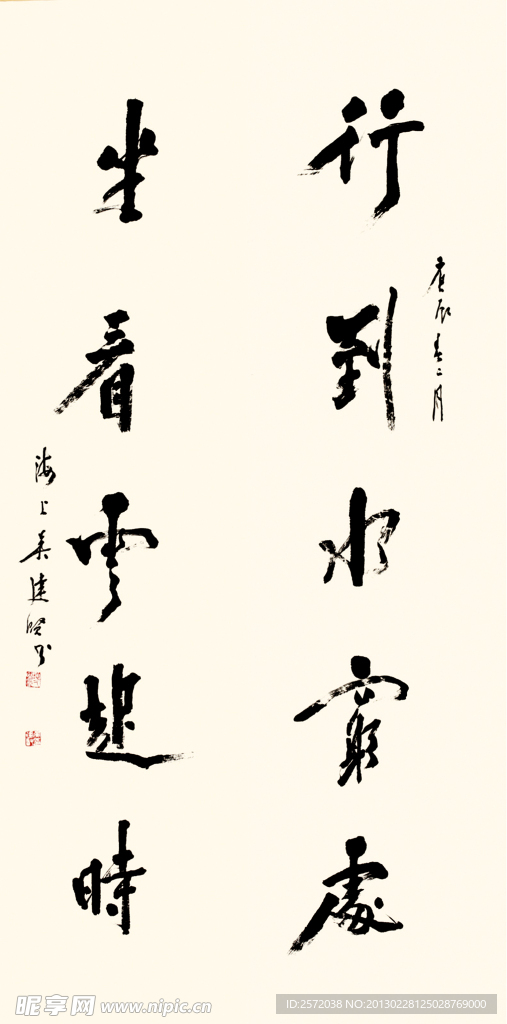 庚辰春二月
行到水窮處
坐看雲起時
海上吴建賢书
昵享网 www.nipic.cn
ID:2572038 NO:20130228125028769000